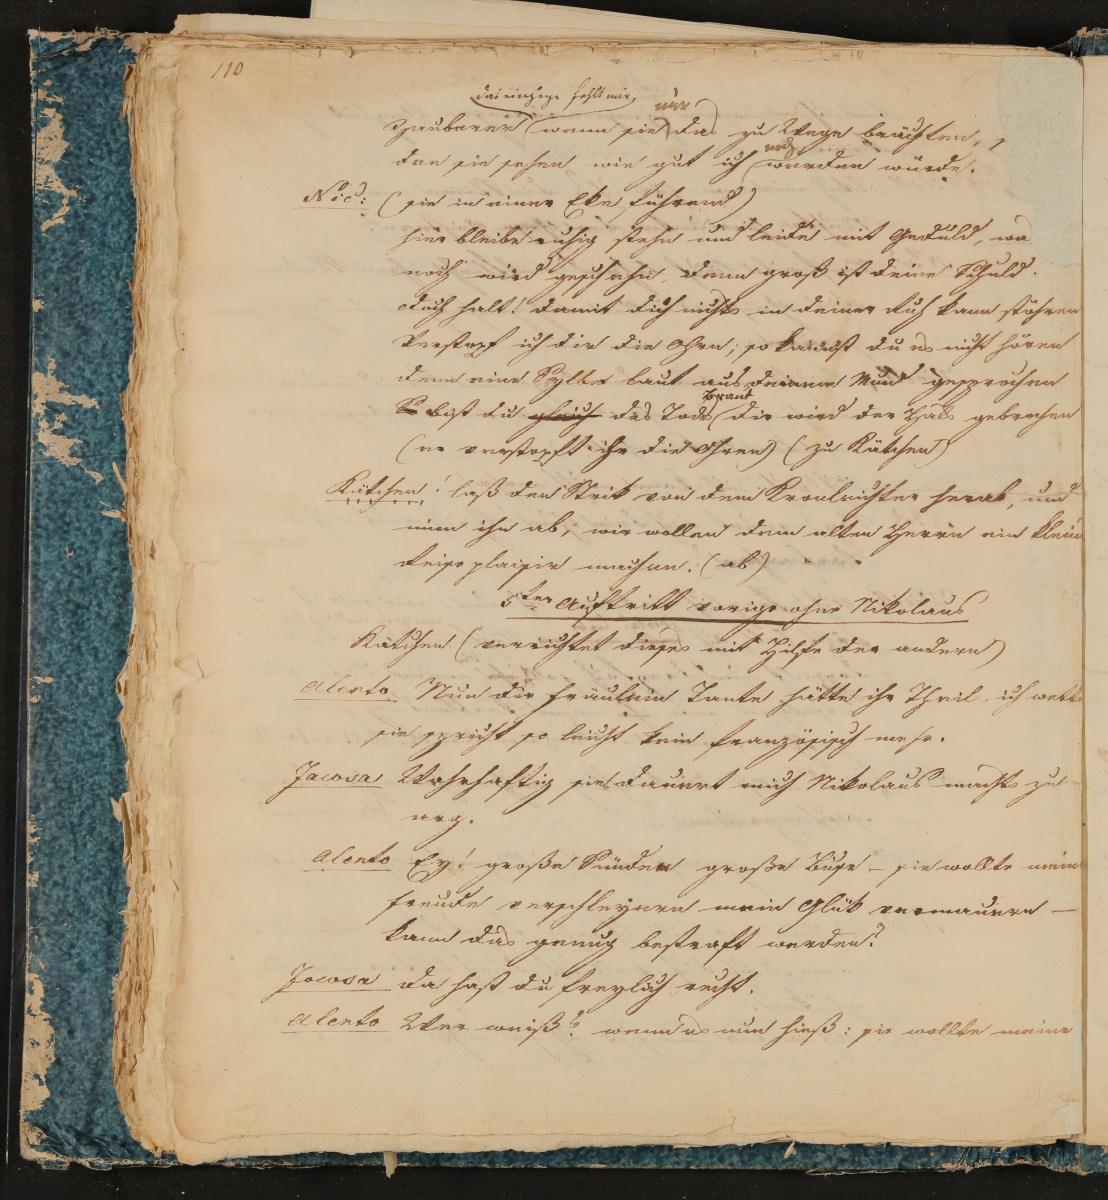 110
das einzige fehlt mir,
nur
Zauberer wenn sie das zu Wege brächten,
noch
den sie sehen wie gut ich werden würde.
Nic: (sie in einer Eke führend)
hier bleibe ruhig stehn und leide mit Geduld, wa
noch wird geschehn, denn groß ist deine Schuld.
doch halt! damit dich nichts in deiner Ruh kann stöhren
Verstopf ich dir die Ohrn; so kannst du es nicht hören
denn eine Sylbe laut aus deinem Mund gesprochen
Braut
So bist du gleich des Tods dir wird der Hals gebrochen
(er verstopft ihr die Ohren) (zu Kätchen)
Kätchen! laß den Strik von dem Kronleuchter herab, und
nim ihn ab, wir wollen dem alten Herrn ein klein
Reise plaisir machen. (ab)
5ter Auftritt vorige ohne Nikolaus
Kätchen (verrichtet dieses mit Hilfe der andern)
Alento Nun die Fräulein Tante hätte ihr Theil, ich wette
sie spricht so leicht kein französisch mehr.
Jacosa Wahrhaftig sie dauert mich Nikolaus machts zu
arg.
Alento Ey! große Sünden große Buße – sie wollte mein
Freude verschleyern mein Glük vermauern –
kann das genug bestraft werden?
Jacosa da hast du freylich recht.
Alento Wer weiß? wenn es nun hieß: sie wollte meine